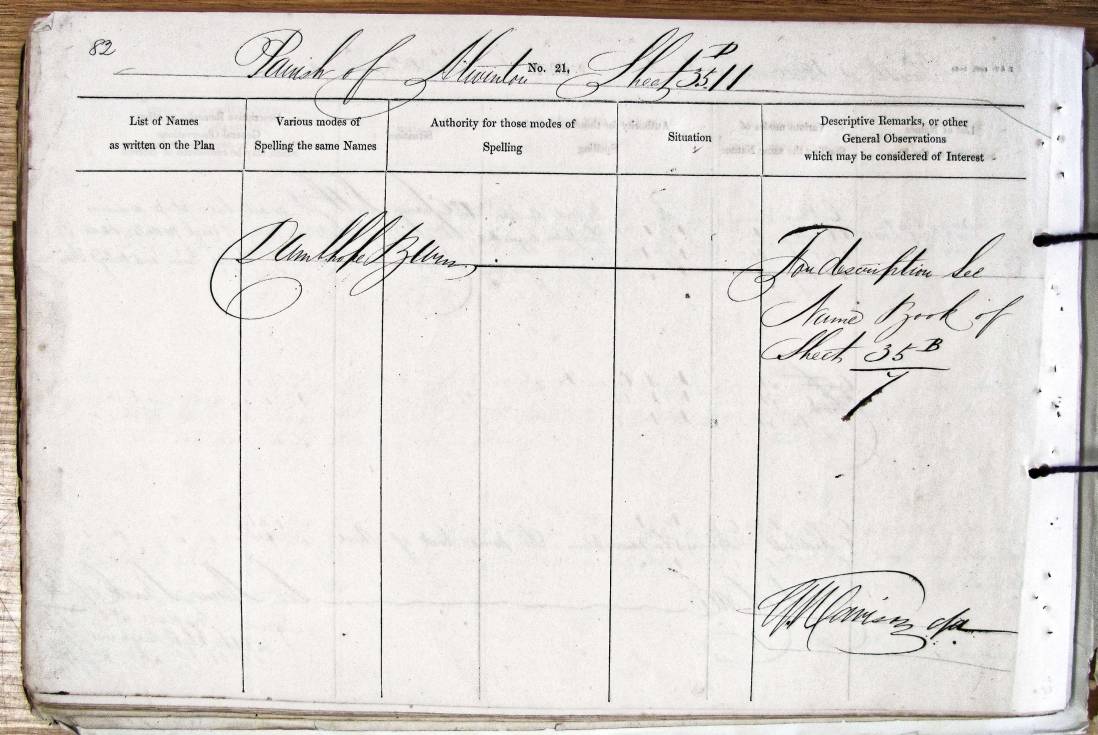 82
Parish of Steventon No. 21, Sheet 35 B 11
List of Names
as written on the Plan
Various modes of
Spelling the same Names
Authority for those modes of
Spelling
Situation
Descriptive Remarks, or other
General Observations
which may be considered of Interest
Burn
For description See
Name Book of
Sheet 35 B
7